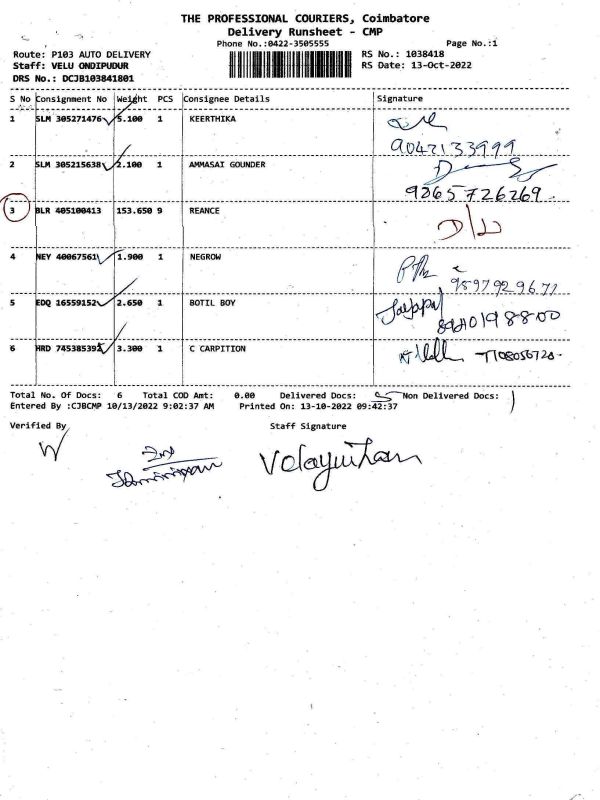 THE PROFESSIONAL COURIERS, Coimbatore
Delivery Runsheet - CMP
Phone No.:0422-3505555 Page No.:1
Route: P103 AUTO DELIVERY RS No.: 1038418
Staff: VELU ONDIPUDUR RS Date: 13-Oct-2022
DRS No.: DCJB103841801
S No Consignment No Weight PCS Consignee Details Signature
1 SLM 305271476 5.100 1 KEERTHIKA
9042133999
2 SLM 305215638 2.100 1 AMMASAI GOUNDER
9865726269
3 BLR 405100413 153.650 9 REANCE
D/L
4 NEY 40067561 1.900 1 NEGROW
9597929671
5 EDQ 16559152 2.650 1 BOTIL BOY
6 HRD 745385392 3.300 1 C CARPITION
Total No. Of Docs: 6 Total COD Amt: 0.00 Delivered Docs: 5 Non Delivered Docs: 1
Entered By :CJBCMP 10/13/2022 9:02:37 AM Printed On: 13-10-2022 09:42:37
Verified By Staff Signature